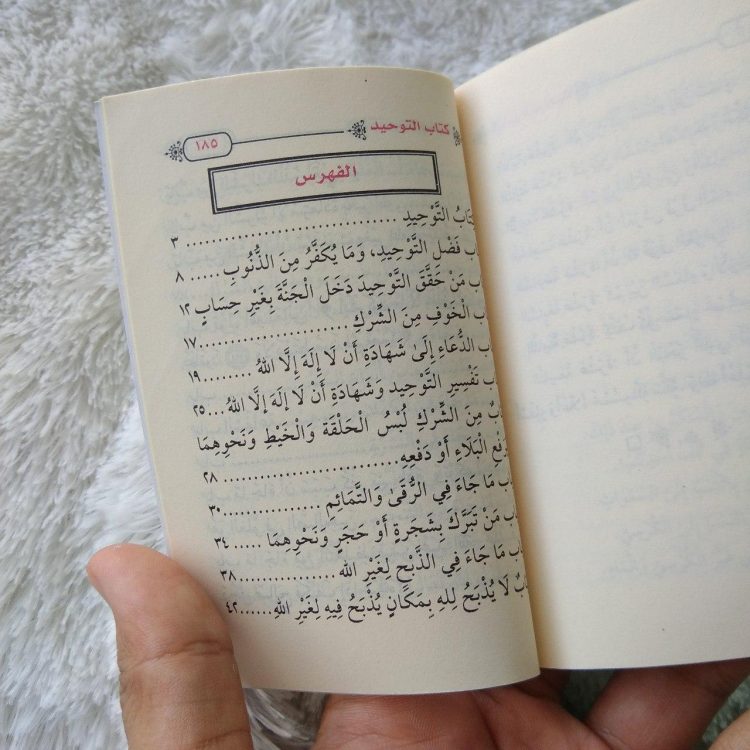 كتاب التوحيد ١٨٥
الفهرس
كِتَابُ التَّوْحِيدِ ................................ ٣
بَابُ فَضْلِ التَّوْحِيدِ، وَمَا يُكَفِّرُ مِنَ الذُّنُوبِ ..... ٨
بَابُ مَنْ حَقَّقَ التَّوْحِيدَ دَخَلَ الْجَنَّةَ بِغَيْرِ حِسَابٍ ١٢
بَابُ الْخَوْفِ مِنَ الشِّرْكِ ..................... ١٧
بَابُ الدُّعَاءِ إِلَىٰ شَهَادَةِ أَنْ لَا إِلَهَ إِلَّا اللهُ ........ ١٩
بَابُ تَفْسِيرِ التَّوْحِيدِ وَشَهَادَةِ أَنْ لَا إِلَهَ إِلَّا اللهُ ... ٢٥
بَابٌ مِنَ الشِّرْكِ لُبْسُ الْحَلْقَةِ وَالْخَيْطِ وَنَحْوِهِمَا
لِرَفْعِ الْبَلَاءِ أَوْ دَفْعِهِ ......................... ٢٨
بَابُ مَا جَاءَ فِي الرُّقَىٰ وَالتَّمَائِمِ ................ ٣٠
بَابُ مَنْ تَبَرَّكَ بِشَجَرَةٍ أَوْ حَجَرٍ وَنَحْوِهِمَا ..... ٣٤
بَابُ مَا جَاءَ فِي الذَّبْحِ لِغَيْرِ الله ................ ٣٨
بَابٌ لَا يُذْبَحُ لِلهِ بِمَكَانٍ يُذْبَحُ فِيهِ لِغَيْرِ اللهِ ...... ٤٢